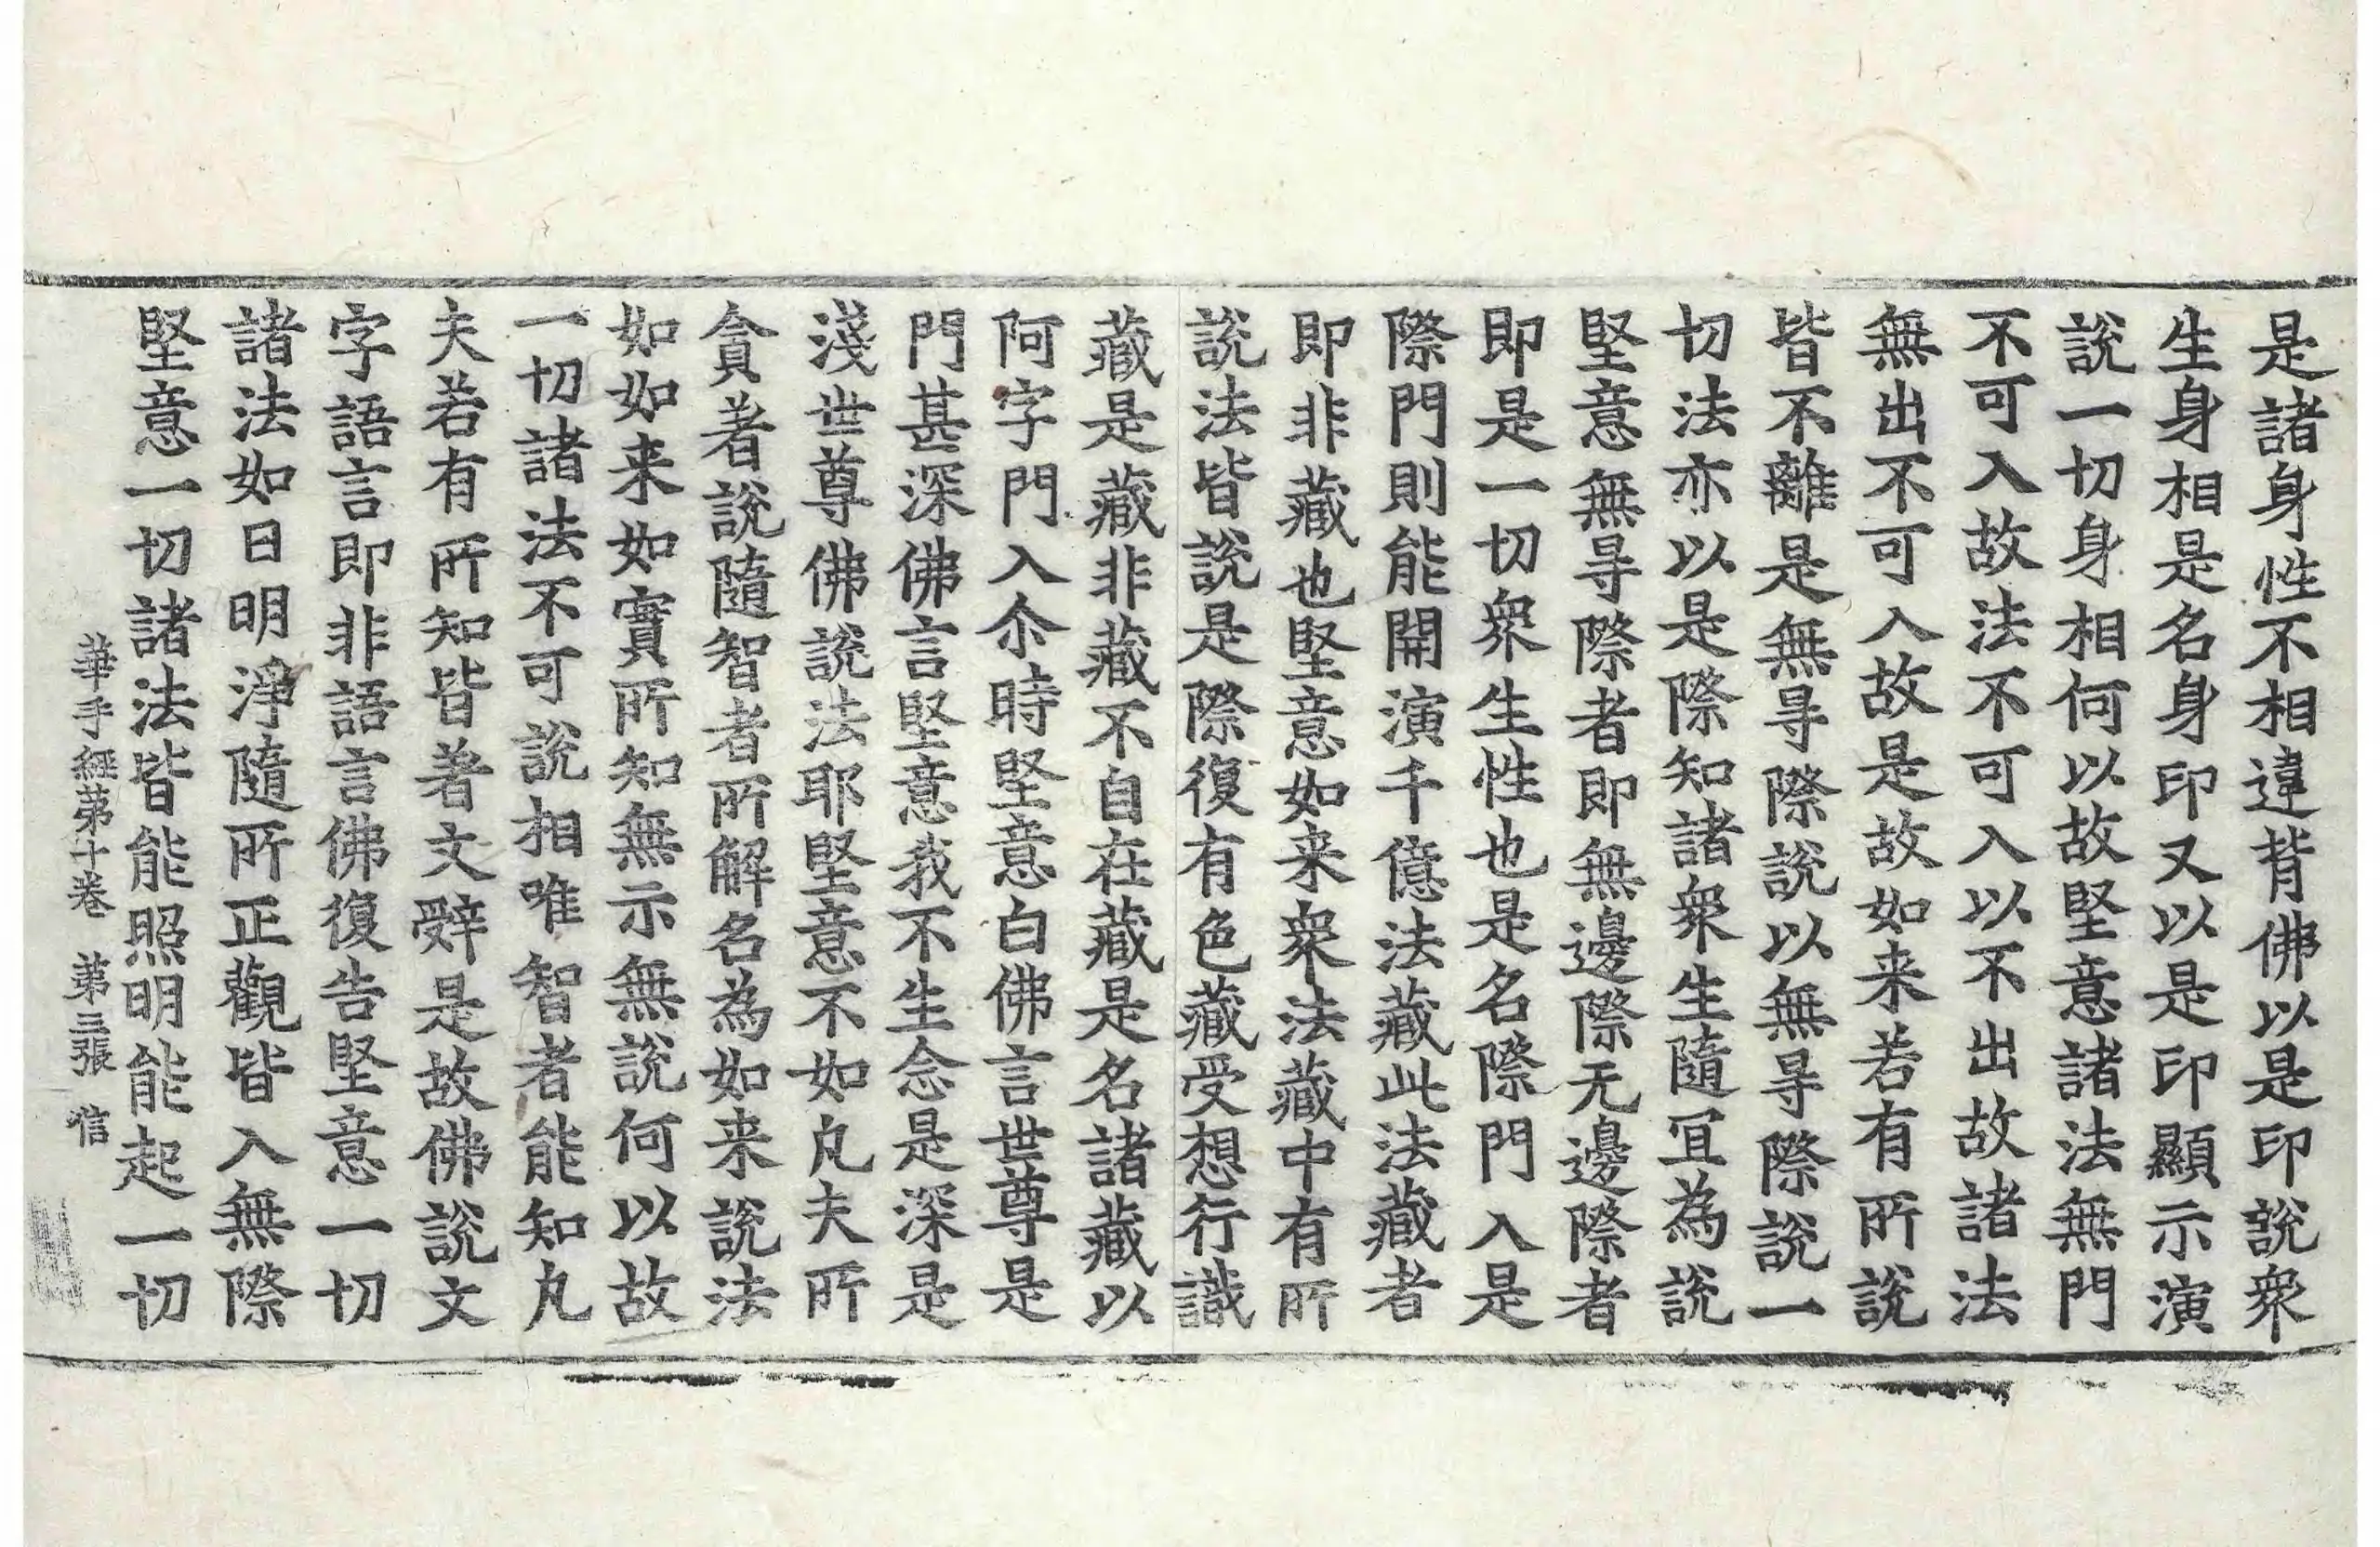 是諸身性不相違背佛以是印說衆
生身相是名身印又以是印顯示演
說一切身相何以故堅意諸法無門
不可入故法不可入以不出故諸法
無出不可入故是故如来若有所說
皆不離是無㝵際說以無㝵際說一
切法亦以是際知諸衆生隨冝為說
堅意無㝵際者即無邊際无邊際者
即是一切衆生性也是名際門入是
際門則能開演千億法藏此法藏者
即非藏也堅意如来衆法藏中有所
說法皆說是際復有色藏受想行識
藏是藏非藏不自在藏是名諸藏以
阿字門入尒時堅意白佛言世尊是
門甚深佛言堅意我不生念是深是
淺世尊佛說法耶堅意不如凡夫所
貪著說隨智者所解名為如来說法
如如来如實所知無示無說何以故
一切諸法不可說相唯智者能知凡
夫若有所知皆著文辤是故佛說文
字語言即非語言佛復告堅意一切
諸法如日明淨隨所正觀皆入無際
堅意一切諸法皆能照明能起一切
華手經第十卷　第三張　信